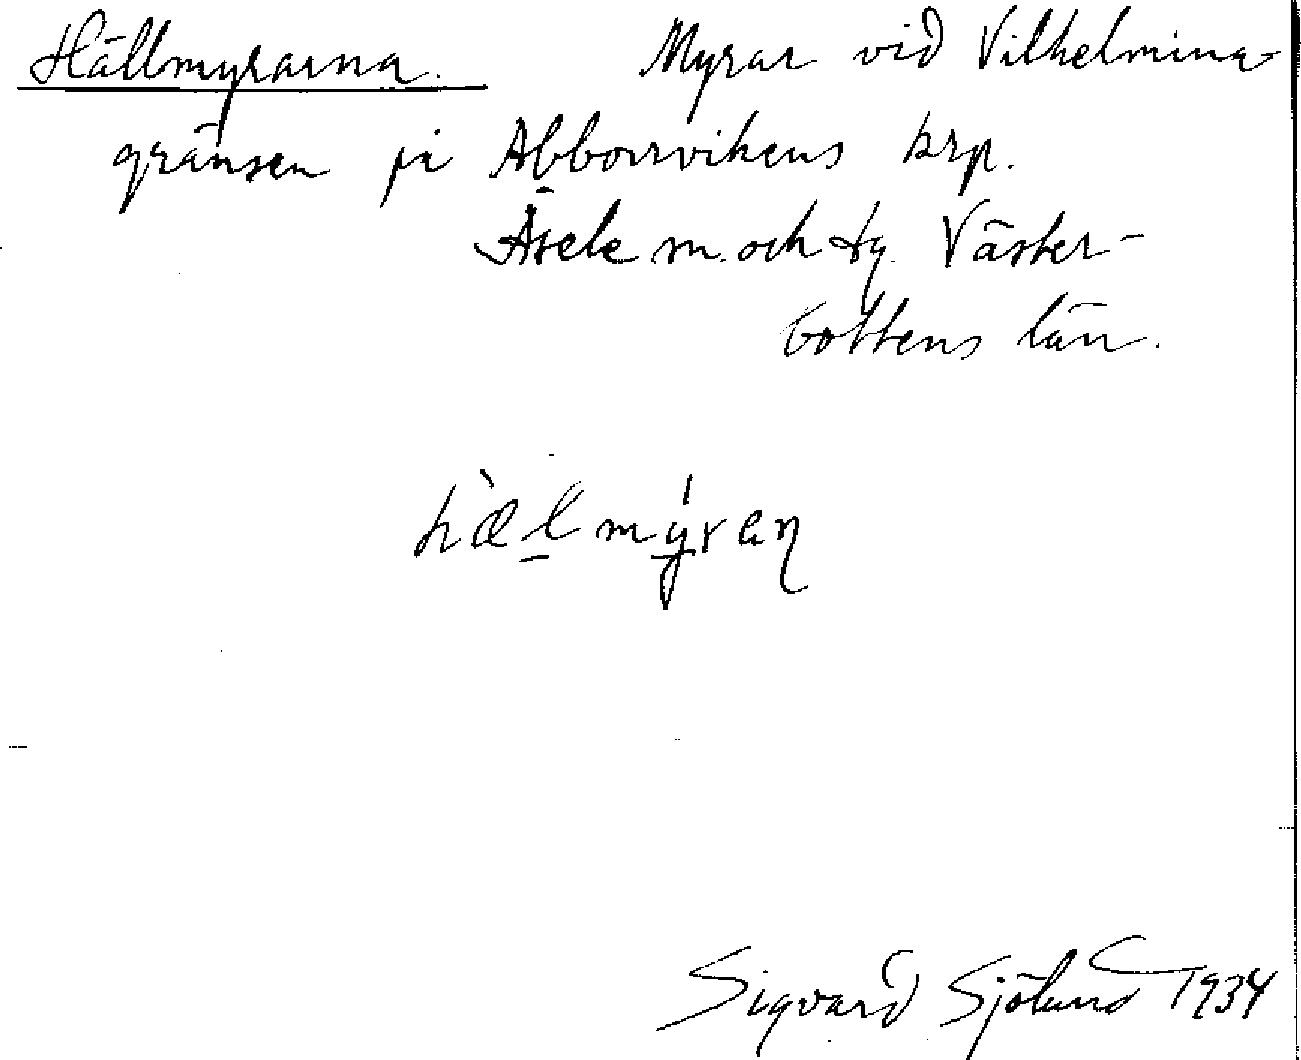 Hällmyrarna. Myrar vid Vilhelmina-
gränsen på Abborrvikens krp.
Åsele sn. och tg. Väster-
bottens län.
hæ̀l̠mýran
Sigvard Sjölund 1934